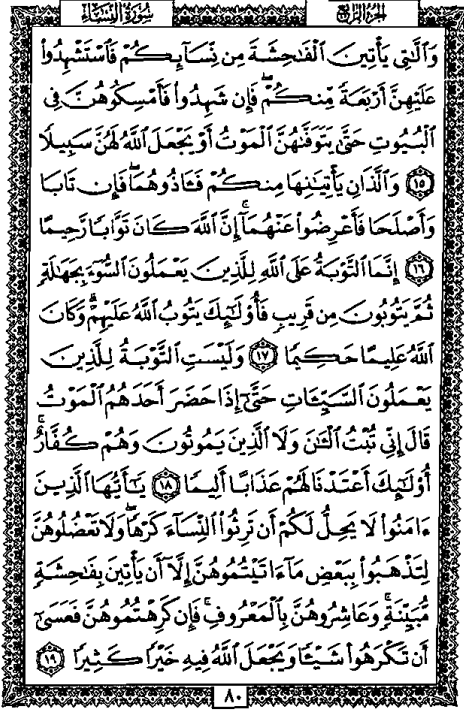 سُورَةُ النِّسَاءِ الجُزْءُ الرَّابِعُ
وَالَّٰتِي يَأْتِينَ الْفَٰحِشَةَ مِن نِّسَآئِكُمْ فَاسْتَشْهِدُوا۟
عَلَيْهِنَّ أَرْبَعَةً مِّنكُمْ ۖ فَإِن شَهِدُوا۟ فَأَمْسِكُوهُنَّ فِي
الْبُيُوتِ حَتَّىٰ يَتَوَفَّىٰهُنَّ الْمَوْتُ أَوْ يَجْعَلَ اللَّهُ لَهُنَّ سَبِيلًا
١٥ وَالَّذَانِ يَأْتِيَٰنِهَا مِنكُمْ فَـَٔاذُوهُمَا ۖ فَإِن تَابَا
وَأَصْلَحَا فَأَعْرِضُوا۟ عَنْهُمَآ ۗ إِنَّ اللَّهَ كَانَ تَوَّابًا رَّحِيمًا
١٦ إِنَّمَا التَّوْبَةُ عَلَى اللَّهِ لِلَّذِينَ يَعْمَلُونَ السُّوٓءَ بِجَهَٰلَةٍ
ثُمَّ يَتُوبُونَ مِن قَرِيبٍ فَأُو۟لَٰٓئِكَ يَتُوبُ اللَّهُ عَلَيْهِمْ ۗ وَكَانَ
اللَّهُ عَلِيمًا حَكِيمًا ١٧ وَلَيْسَتِ التَّوْبَةُ لِلَّذِينَ
يَعْمَلُونَ السَّيِّـَٔاتِ حَتَّىٰٓ إِذَا حَضَرَ أَحَدَهُمُ الْمَوْتُ
قَالَ إِنِّي تُبْتُ الْـَٰٔنَ وَلَا الَّذِينَ يَمُوتُونَ وَهُمْ كُفَّارٌ ۚ
أُو۟لَٰٓئِكَ أَعْتَدْنَا لَهُمْ عَذَابًا أَلِيمًا ١٨ يَٰٓأَيُّهَا الَّذِينَ
ءَامَنُوا۟ لَا يَحِلُّ لَكُمْ أَن تَرِثُوا۟ النِّسَآءَ كَرْهًا ۖ وَلَا تَعْضُلُوهُنَّ
لِتَذْهَبُوا۟ بِبَعْضِ مَآ ءَاتَيْتُمُوهُنَّ إِلَّآ أَن يَأْتِينَ بِفَٰحِشَةٍ
مُّبَيِّنَةٍ ۚ وَعَاشِرُوهُنَّ بِالْمَعْرُوفِ ۚ فَإِن كَرِهْتُمُوهُنَّ فَعَسَىٰٓ
أَن تَكْرَهُوا۟ شَيْـًٔا وَيَجْعَلَ اللَّهُ فِيهِ خَيْرًا كَثِيرًا ١٩
٨٠